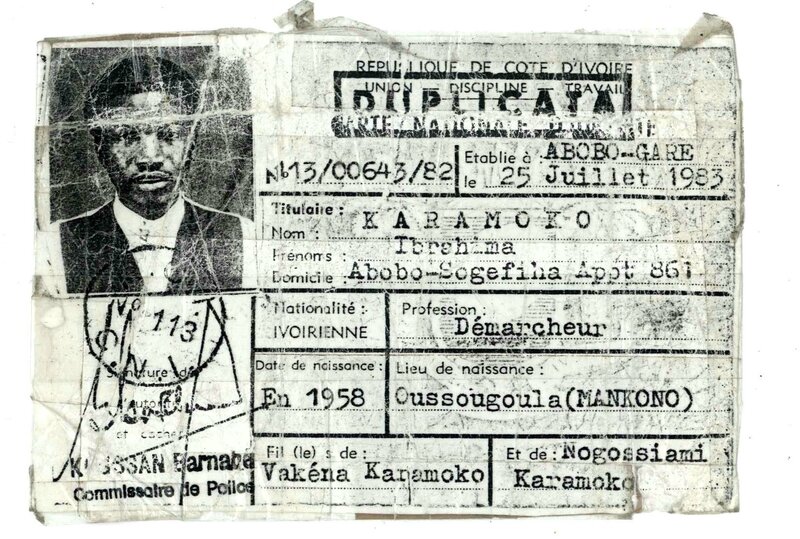 REPUBLIQUE DE COTE D'IVOIRE
UNION DISCIPLINE TRAVAIL
DUPLICATA
CARTE NATIONALE D'IDENTITE
Nº13/00643/82
Etablie à : ABOBO-GARE
le 25 Juillet 1983
Titulaire :
Nom : KARAMOKO
Prénoms : Ibrahima
Domicile Abobo-Sogefiha Appt 861
Nationalité :
IVOIRIENNE
Profession :
Démarcheur
Date de naissance :
En 1958
Lieu de naissance :
Oussougoula(MANKONO)
Fil (le) s de :
Vakéna Karamoko
Et de : Nogossiami
Karamoko
No 113
C.N.I.
Signature de
et cachet
Barnabé
Commissaire de Police